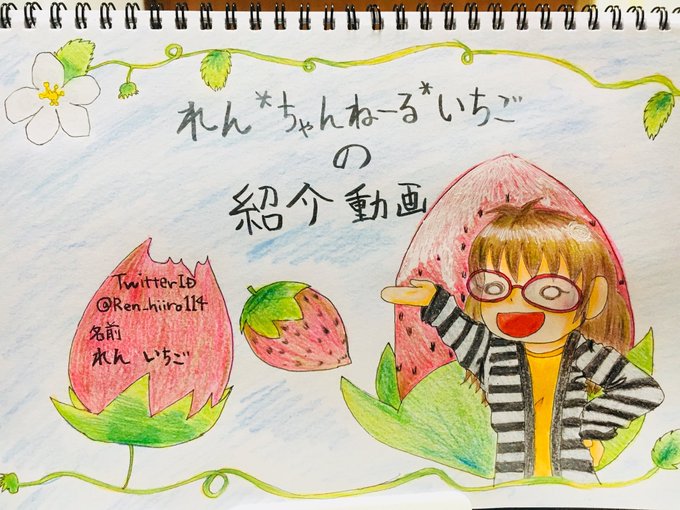 れん*ちゃんねーる*いちご
の
紹介動画
TwitterID
@Ren_hiiro114
名前
れん いちご